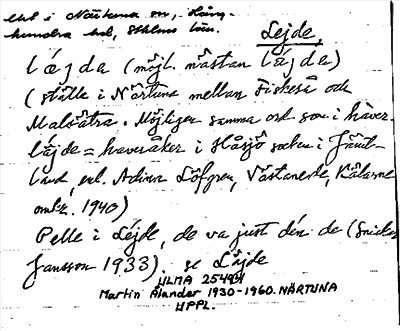 ked i Närtuna sn, Lång-
hundra hd, Sthlms län.
Lejde,
lájde (möjl. nästan lájde)
(ställe i Närtuna mellan Fiskeså och
Malsätra. Möjligen samma ord som i haver-
läjde = haveråker i Håsjö socken i Jämt-
land, enl. Adina Löfgren, Västanede, Kälarne
omkr. 1940)
Pelle i Lejde, de va just dén de (Snickar
Jansson 1933). se Läjde
ULMA 25494
Martin Ålander 1930-1960. NÄRTUNA
UPPL.